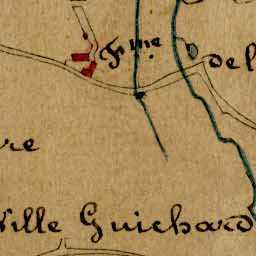 Fme
del
re
Ville Guichard